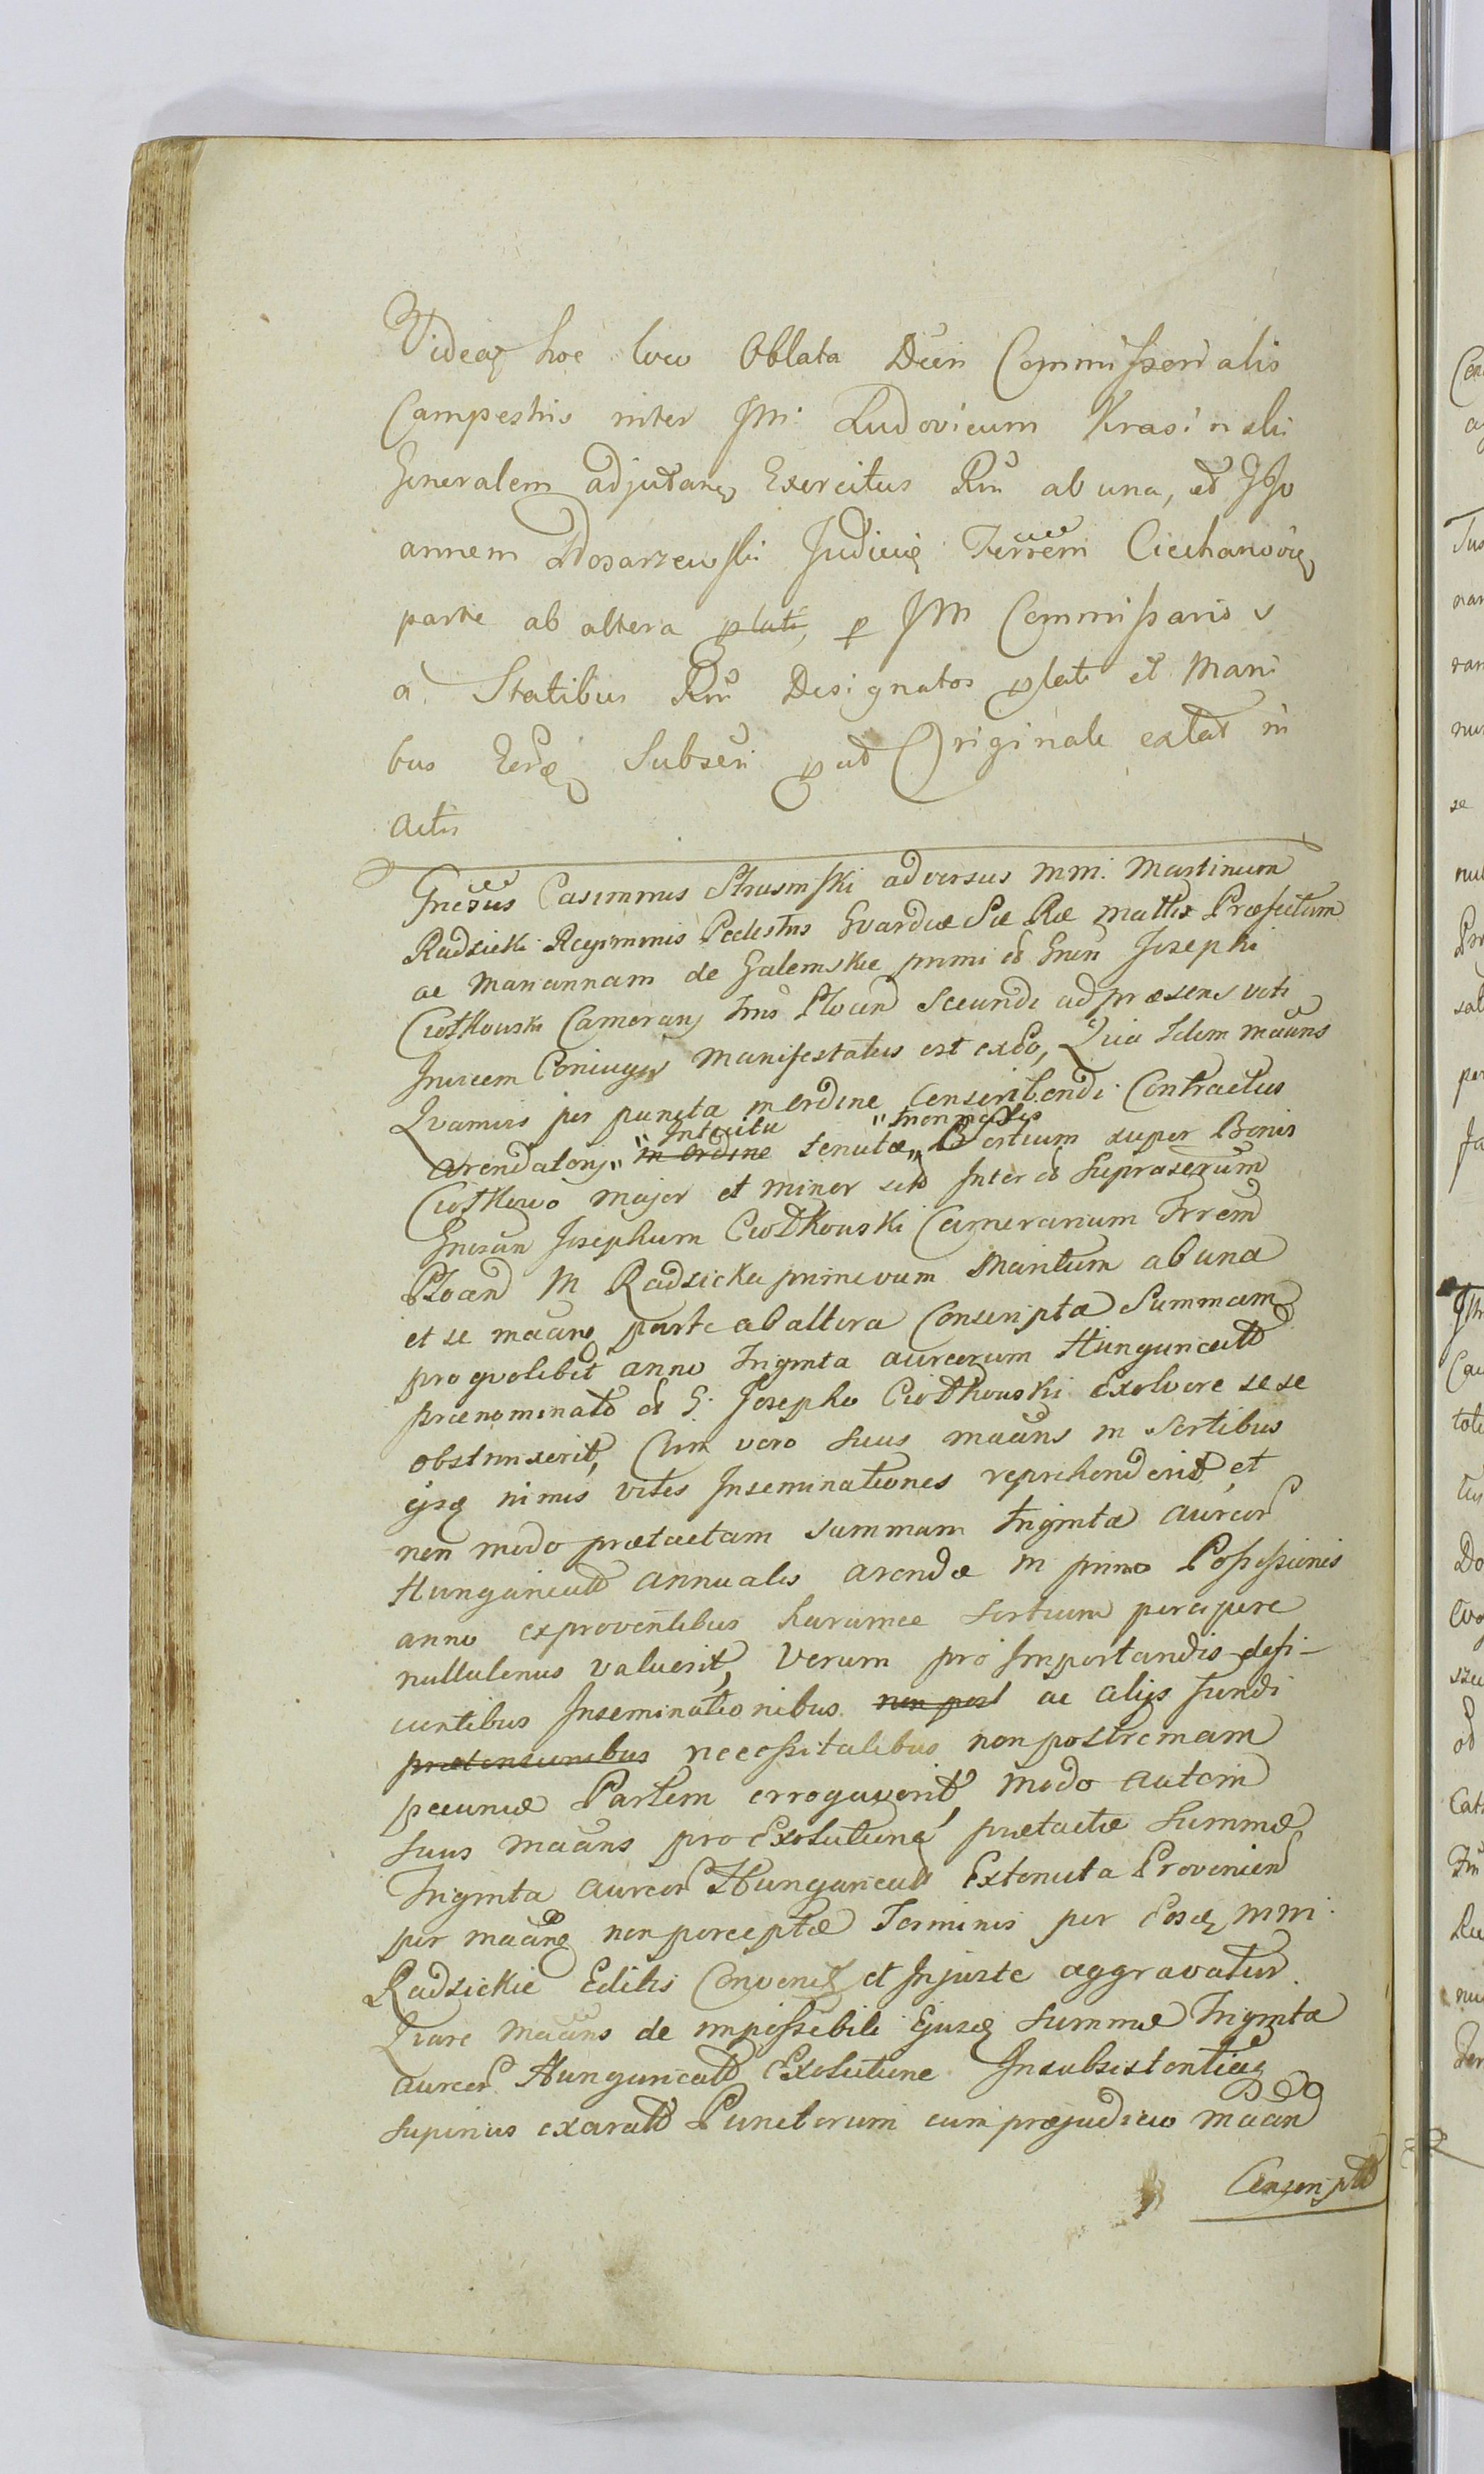 Videaꝫ hoc loco Oblata Dcin Commissorialis
Campestris inter JM. Ludovicum Krasinski
Generalem adjutanꝫ Exercitus Rni ab una, et J Jo
annem Mosarzewski Judicię Terrem Ciechanovię
parte ab altera plati, p JM Commissarios
a Statibus Rni Designatos plati et Mani
bus Subscri put Originale extat in
actis
Gnerosus Casimirus Strusinski adversus MM. Martinum
Radzicki Regiminis Pedestris Gvardiæ Sæ Ræ Mattis Præfectum
ac Mariannam de Galemskie primi ol Gnri Josephi
Ciotkowski Camerarij Trris Plocen Secundi ad præsens voti
Invicem Coniuges Manifestatus est exeo, Quia Idem maans
Qvamvis per puncta in ordine conscribendi Contractus
arendatorij in Ordine Intuitu tenutæ nonnullis Sortium super Bonis
Ciotkowo major et minor sitis Inter ol Suprascrum
Gnrosum Josephum Ciotkowski Camerarium Trrem
Plocen M Radzicka primevum Maritum ab una
et se maane parte ab altera Conscripta Summam
pro qvolibet anno Triginta aureorum Hungaricall
prænominato ol G. Josepho Ciotkowski Exolvere sese
obstrinxerit, Cum vero Suus maans in Sortibus
ejsꝫ nimis viles Inseminationes reprehenderit, et
non modo prætactam summam triginta aureor
Hungaricall annualis arendæ in primo Possessionis
anno ex proventibus harumce Sortium percipere
nullatenus valuerit, Verum pro Importandis defi-
cientibus Inseminationibus non post ac alijs fundi
prætensionibus necessitatibus non postremam
pecuniæ Partem errogaverit, modo autem
Suus maans pro Exolutione prætactæ Summæ
Triginta aureor Hungaricall Extenuta Provenien
per maane non perceptæ Terminis per Eosꝫ MM.
Radzickie Editis Conveniꝫ et Injuste aggravatur.
Qvare Maans de impossibili Ejusꝫ Summæ Triginta
aureor Hungaricall Exolutione Insubsistentiaꝫ
superius exarall Punctorum cum præjudicio maan
Conscriptall